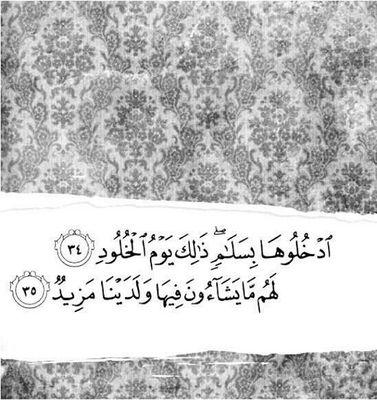 ٱدْخُلُوهَا بِسَلَٰمٍۖ ذَٰلِكَ يَوْمُ ٱلْخُلُودِ ٣٤
لَهُم مَّا يَشَآءُونَ فِيهَا وَلَدَيْنَا مَزِيدٌ ٣٥